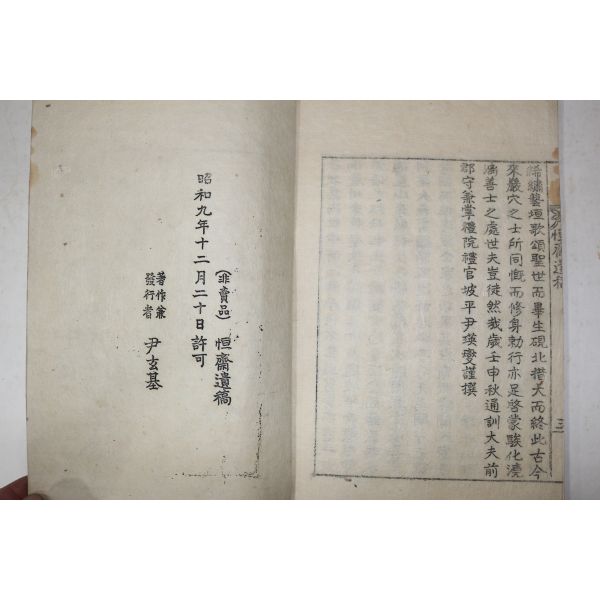 恒齋遺稿
三
絺繡藝垣歌頌聖世而畢生硯北措大而終此古今
來巖穴之士所同慨而修身勅行亦足啓蒙駿化澆
漓善士之處世夫豈徒然哉歲壬申秋通訓大夫前
郡守兼掌禮院禮官坡平尹瑛燮謹撰
(非賣品) 恒齋遺稿
昭和九年十二月二十日許可
著作兼
發行者 尹玄基